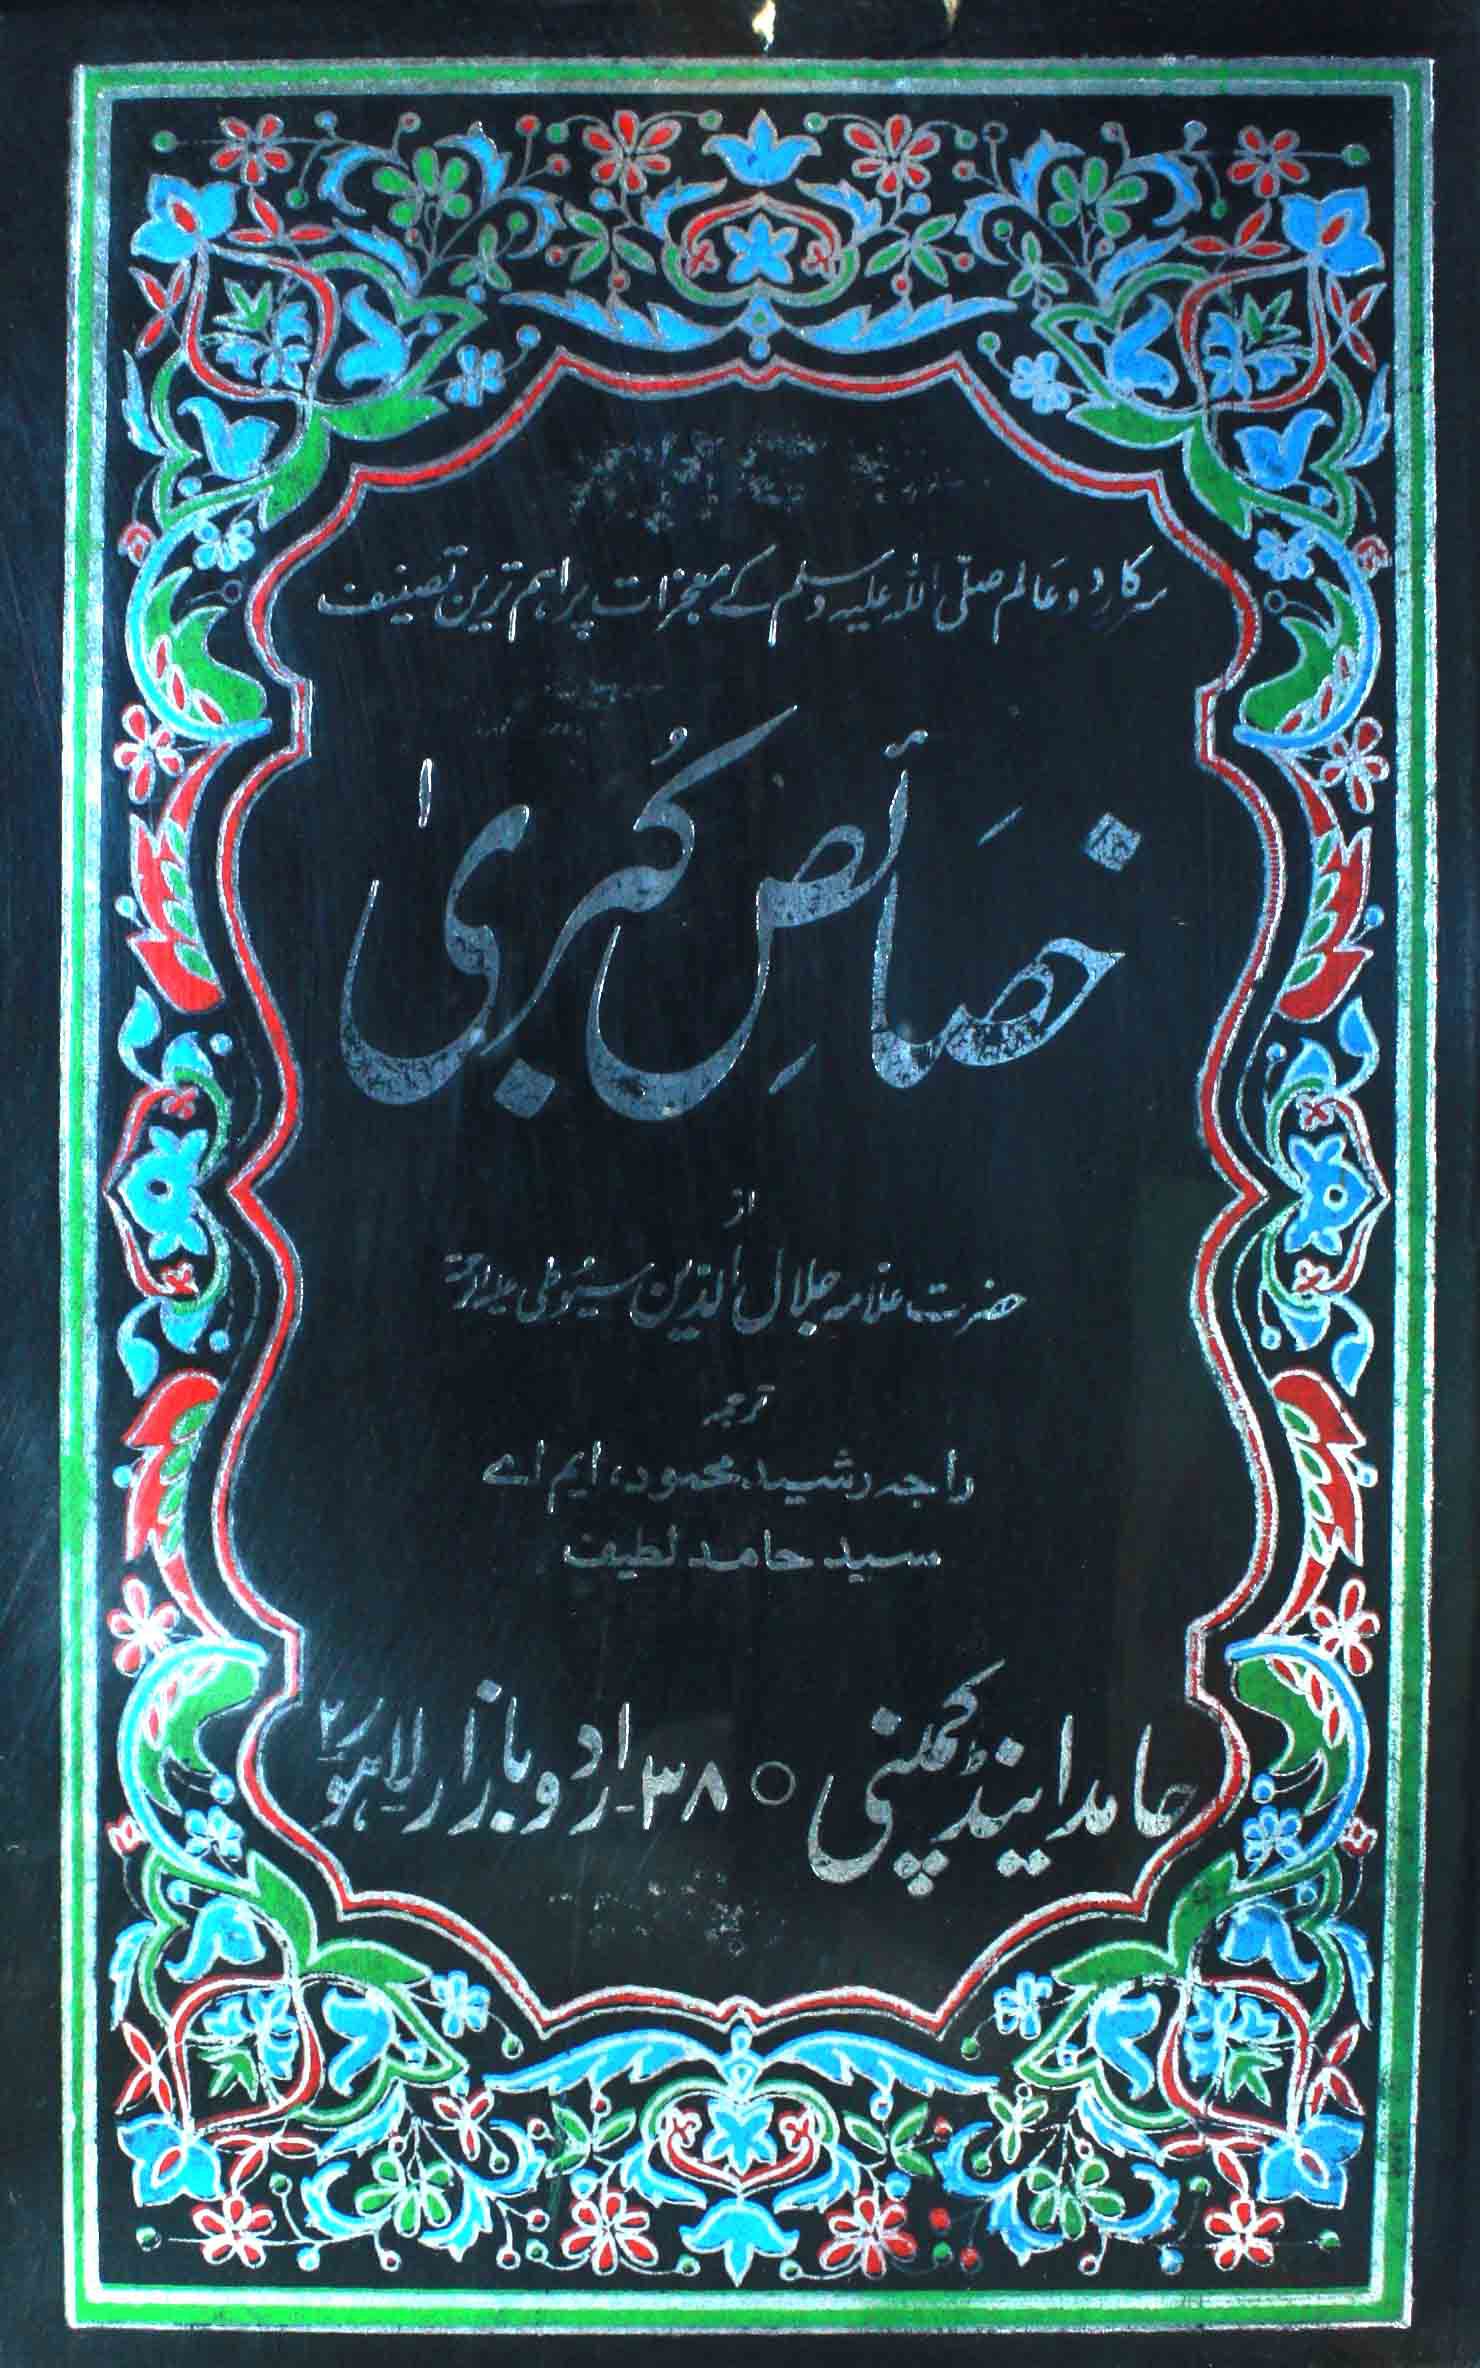 سرکارِ دو عالم صلّی اللہ علیہ وسلم کے معجزات پر اہم ترین تصنیف
خصَائصِ کُبریٰ
از
حضرت علامہ جلال الدّین سیُوطی علیہ الرحمۃ
ترجمہ
راجہ رشید محمود، ایم اے
سید حامد لطیف
حامد اینڈ کمپنی ○ ۳۸۔اردو بازار لاہور ۲